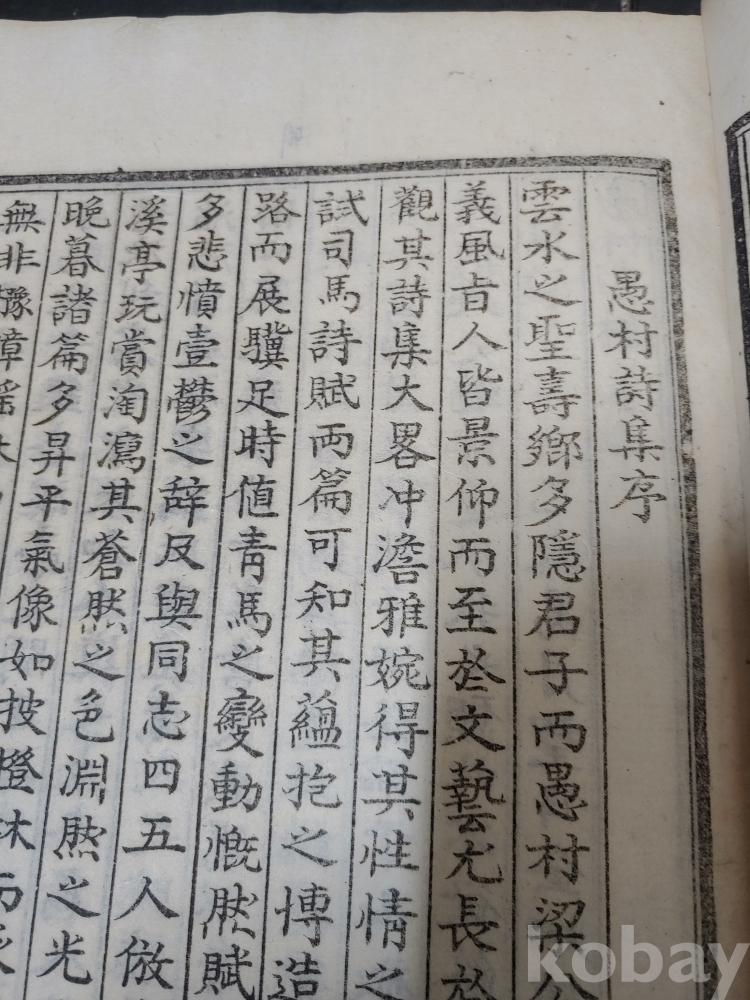 愚村詩集序
雲水之聖壽鄉多隱君子而愚村梁公
義風旨人皆景仰而至於文藝尤長於
觀其詩集大畧冲澹雅婉得其性情之
試司馬詩賦兩篇可知其蘊抱之博造
路而展驥足時値靑馬之變動慨然賦
多悲憤壹鬱之辞及與同志四五人倣
溪亭玩賞淘瀉其蒼然之色淵然之光
晩暮諸篇多昇平氣像如披橙
無非橡樟
kobay